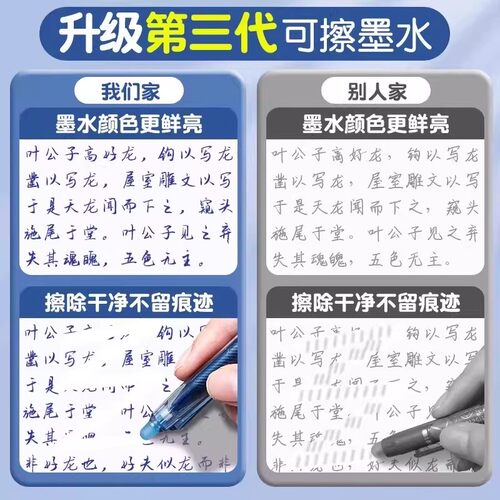 升级第三代可擦墨水
我们家
墨水颜色更鲜亮
叶公子高好龙，钩以写龙
凿以写龙，屋室雕文以写
于是天龙闻而下之，窥头
施尾于堂。叶公子见之弃
失其魂魄，五色无主。
擦除干净不留痕迹
叶公子 钩以写龙
凿以写龙，屋室雕
于是
施尾于堂 叶公子
失其 五色无主。
非好龙也，好夫似龙而非
别人家
墨水颜色更鲜亮
叶公子高好龙，钩以写龙
凿以写龙，屋室雕文以写
于是天龙闻而下之，窥头
施尾于堂。叶公子见之弃
失其魂魄，五色无主。
擦除干净不留痕迹
叶公子 钩以写龙
凿以写 屋室雕文以写
于是
施尾于堂 叶公子
失其
非好龙也，好夫